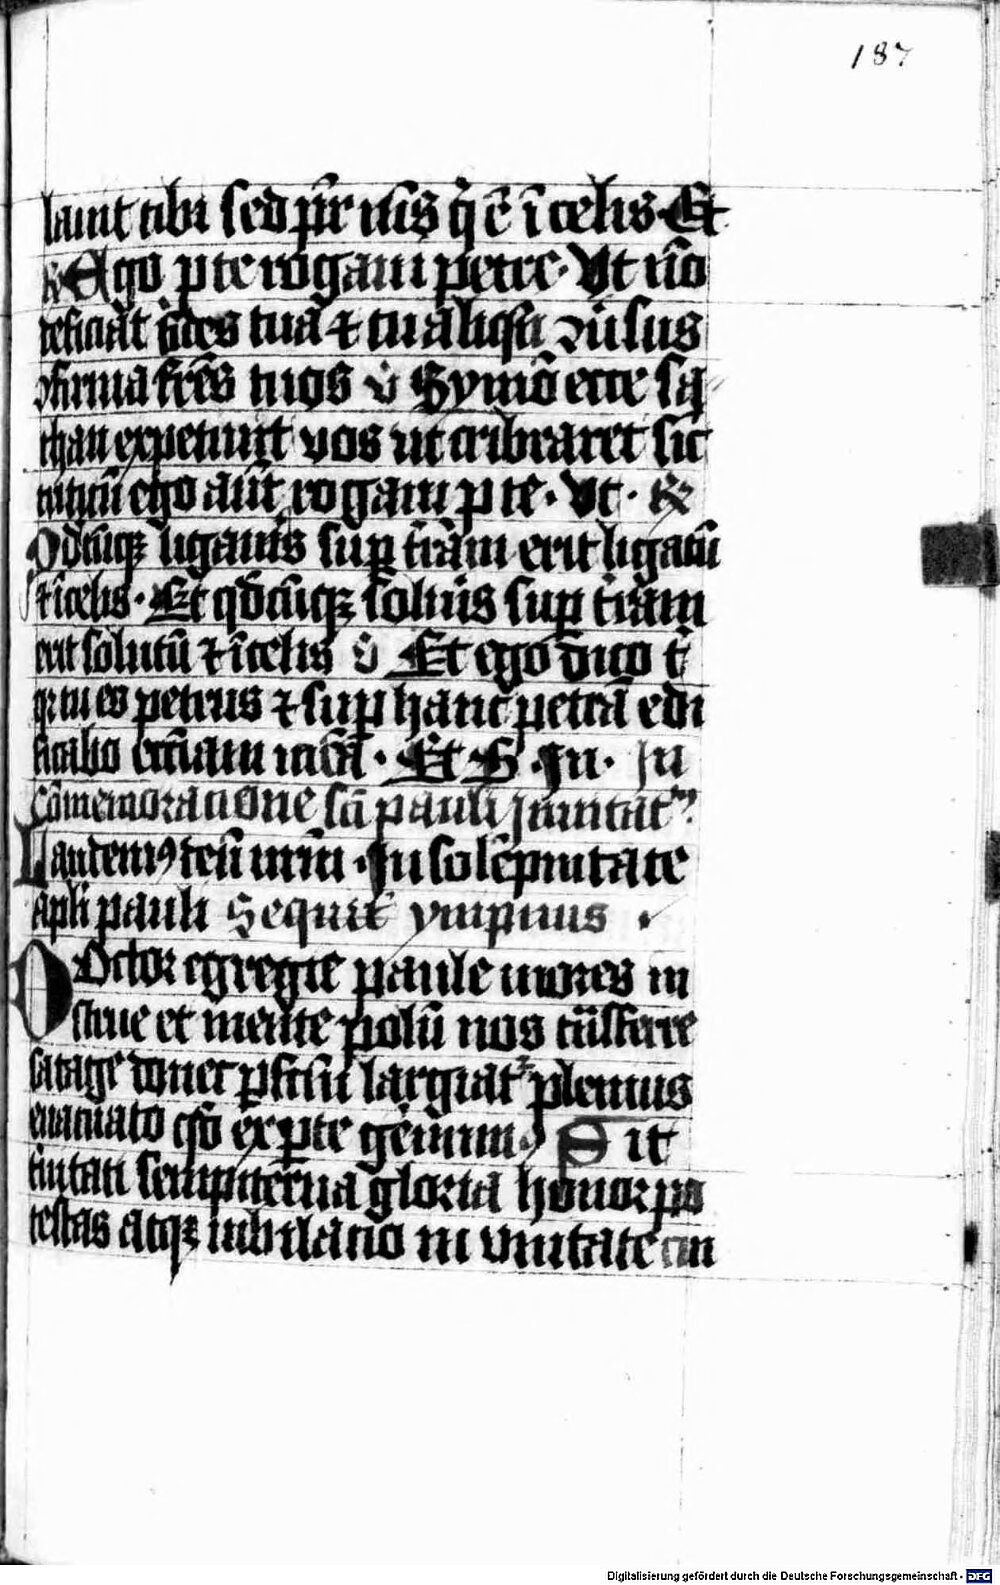 187
lauit tibi sed pr̄ m̄s q̇ ē ī celis · Et
℟ Ego p te rogaui petre · Vt nō
deficiat fides tua ⁊ tu aliqn̄ ↄūsus
ↄfirma fr̄es tuos ℣ Symō ecce sa
than expetiuit vos ut cribraret sic
triticū ego aūt rogaui p te · Vt · ℟
Qdcūqꝫ ligauis sup tr̄am erit ligatū
⁊ ī celis · Et qdcūqꝫ soluis sup tr̄am
erit solutū ⁊ ī celis ℣ Et ego dico t̄
qr tu es petrus ⁊ sup hanc petrā edi
ficabo eccliam meā · Et G · In · In
cōmemoracione sc̄i pauli Inuitat
Laudemꝰ deū nr̄m · In solēpnitate
apli pauli Sequit ympnus ·
Doctor egregie paule mores in
strue et mente polū nos trāsferre
satage donec pfctū largiat plenius
euacuato qd̄ ex pte gerimꝰ Sit
t̄nitati sempiterna gloria honor po
testas atqꝫ iubilacio in vnitate cui
Digitalisierung gefördert durch die Deutsche Forschungsgemeinschaft - DFG